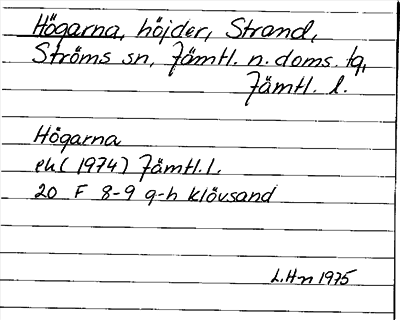 Högarna, höjder, Strand,
Ströms sn, Jämtl. n. doms. tg,
Jämtl. l.
Högarna
ek (1974) Jämtl. l.
20 F 8-9 g-h Klövsand
L.Hn 1975